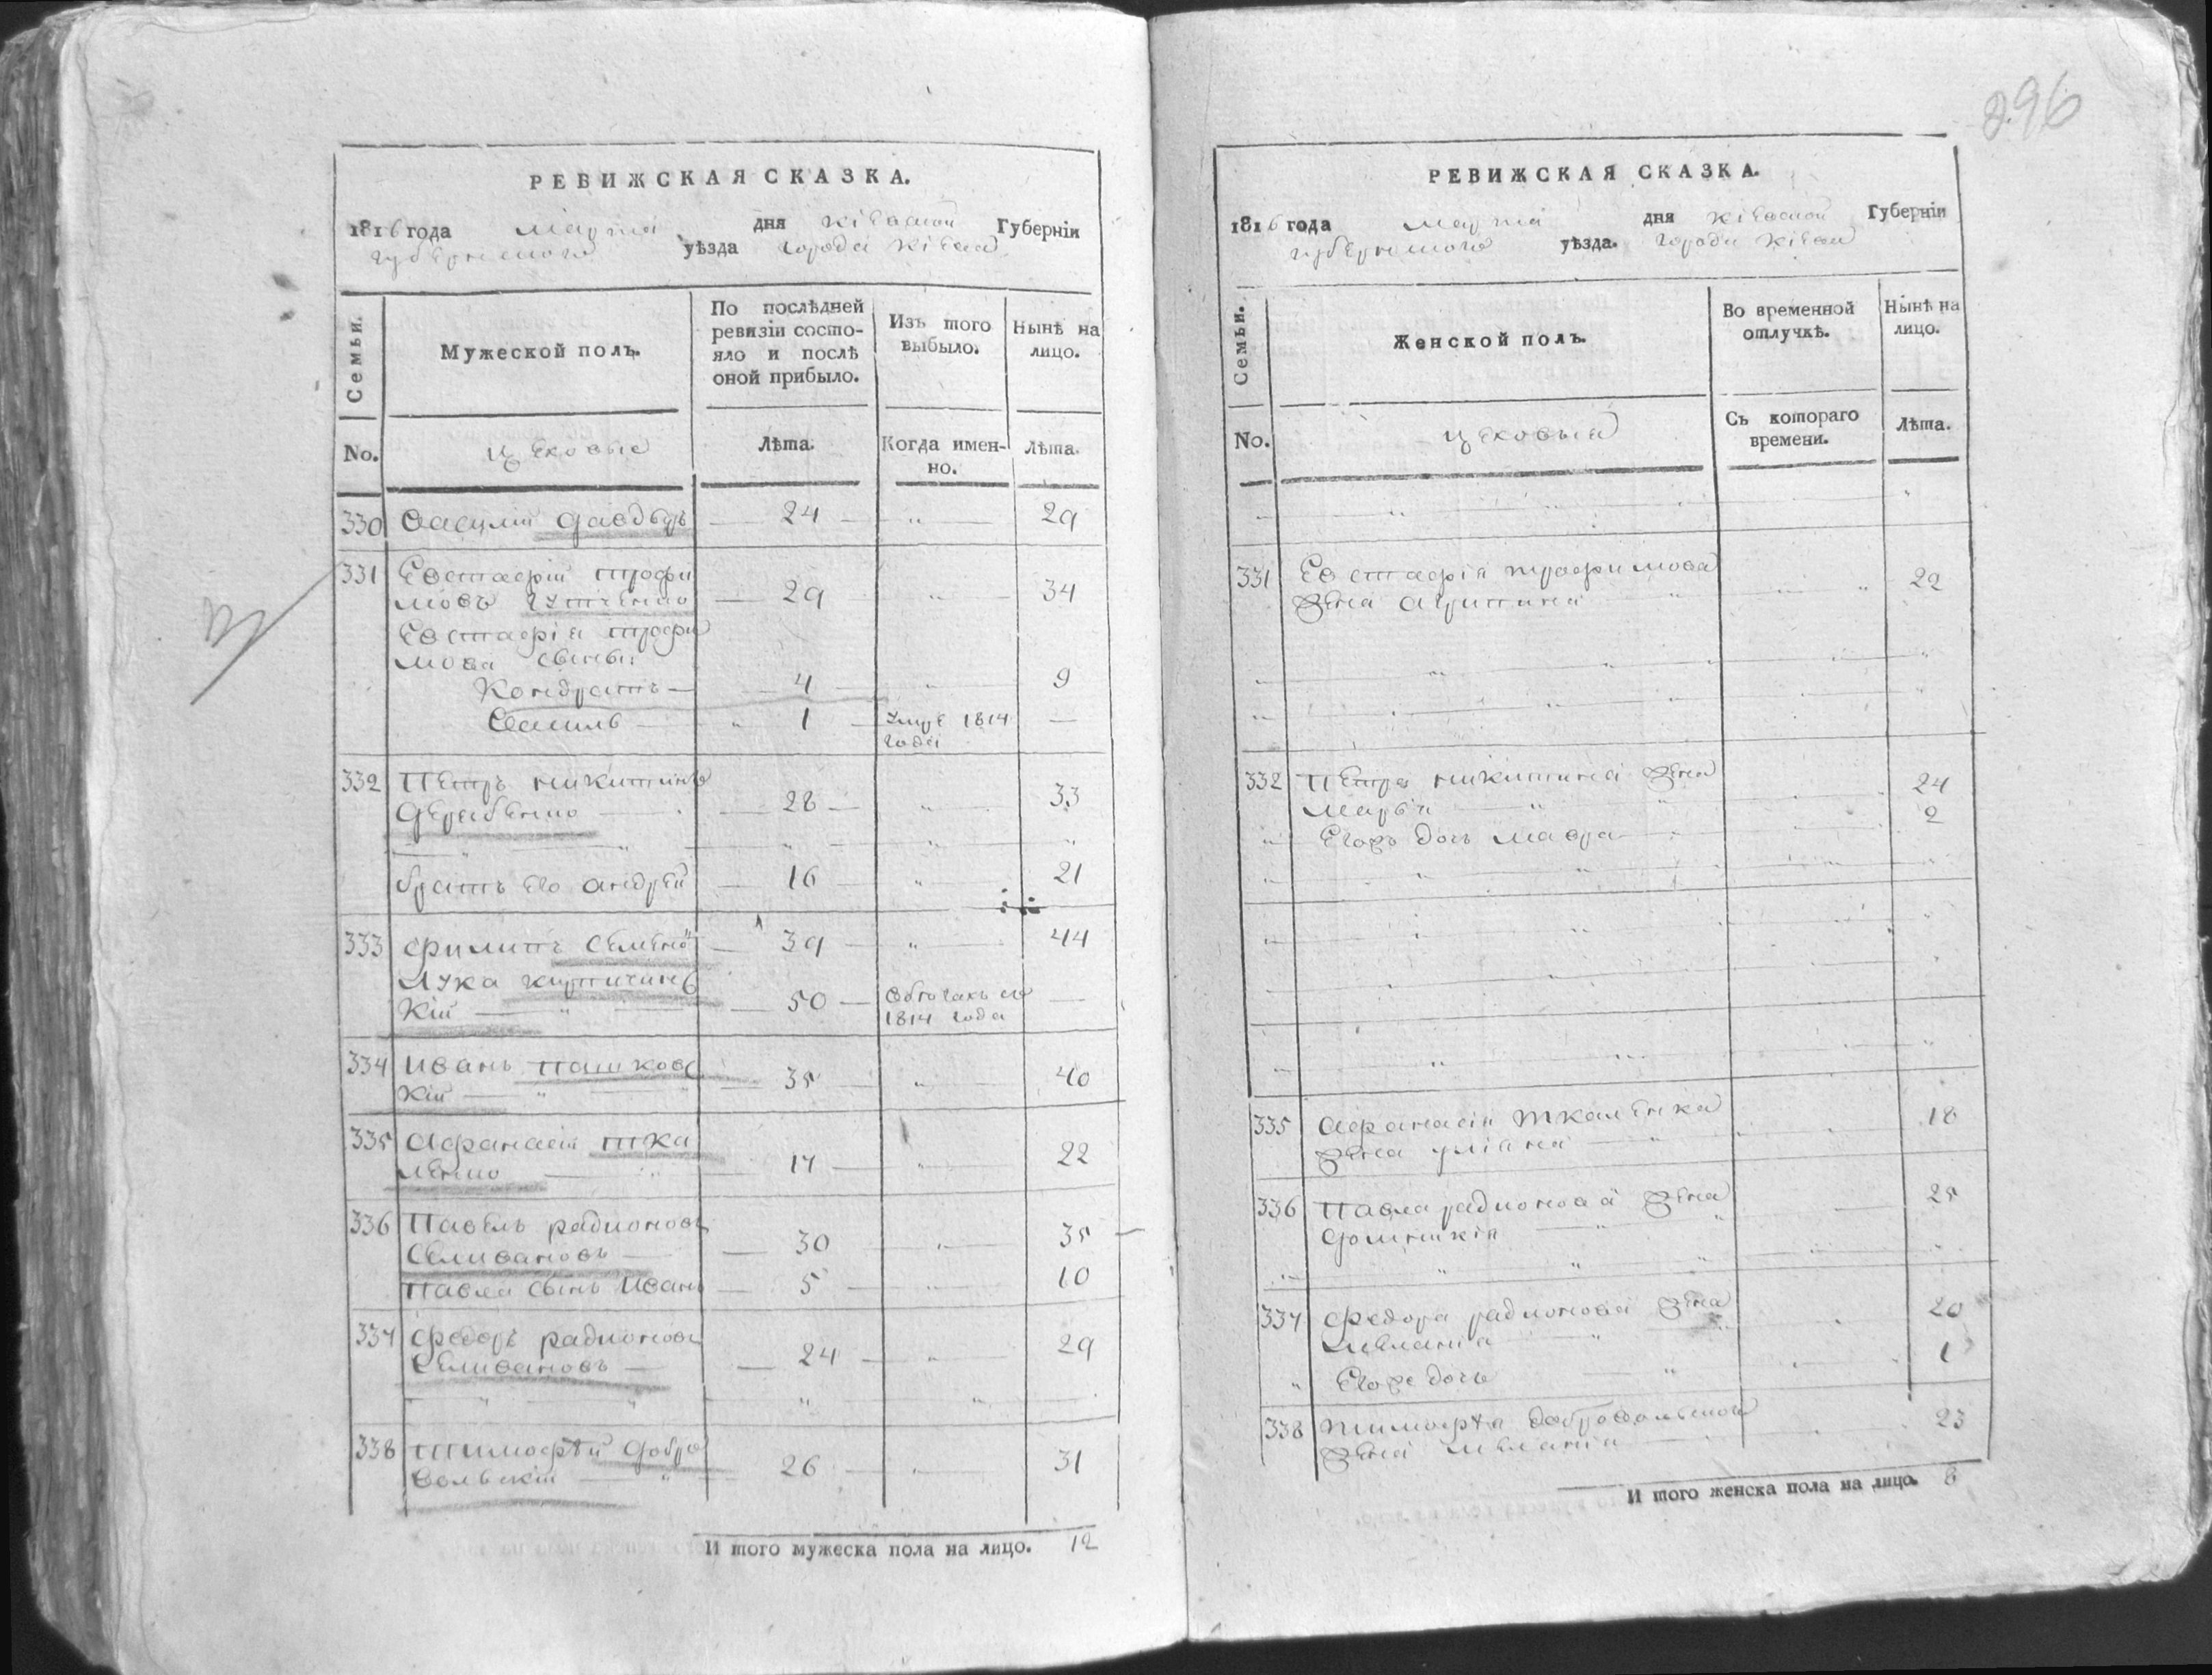 296
РЕВИЖСКАЯ СКАЗКА.
1816 года марта дня Кіевской Губерніи
губернского уѣзда города Кіева
Семьи.
Мужеской полъ.
По послѣдней ревизіи состо-
яло и послѣ
оной прибыло.
Изъ того
выбыло.
Нынѣ на
лицо.
No. цеховые Лѣта. Когда имен-
но. Лѣта.
330 Василій 24 „ 29
331 Евстафій Трофи
мовъ 29 „ 34
Евстафія Трофи
мова сыновья
Кондратъ 4 „ 9
Василь „ 1 умре 1814
года
332 Петръ Никитинъ
Дерабенко 28 „ 33
братъ его Андрей 16 „ 21
333 Филипъ Семено 39 „ 44
Лука Кириченъ
кій „ 50 въ бѣгахъ съ
1814 года
334 Иванъ Пашковс
кій „ 35 „ 40
335 Афанасій Тка
ленко 17 „ 22
336 Павелъ Радионовъ
Селивановъ 30 „ 35
Павла сынъ Иванъ 5 „ 10
337 Федоръ Радионовъ
Селивановъ 24 „ 29
338 Тимофѣй Добро
вольскій 26 „ 31
И того мужеска пола на лицо. 12
РЕВИЖСКАЯ СКАЗКА.
1816 года марта дня Кіевской Губерніи
губернского уѣзда. города Кіева
Семьи.
Женской полъ.
Во временной
отлучкѣ.
Нынѣ на
лицо.
No. цеховыя Съ котораго
времени. Лѣта.
331 Евстафія Трофимова
жена Агрипина 22
332 Петра Никитина жена
Марья 24
Егоръ дочь Мавра 2
335 Афанасія Ткаленка
жена Уліяна 18
336 Павла Радионова жена
Домникія 25
337 Федора Радионова жена
Меланія 20
Егоре дочь 1
338 Тимофѣя Добровольского
жена Меланія 23
И того женска пола на лицо. 8